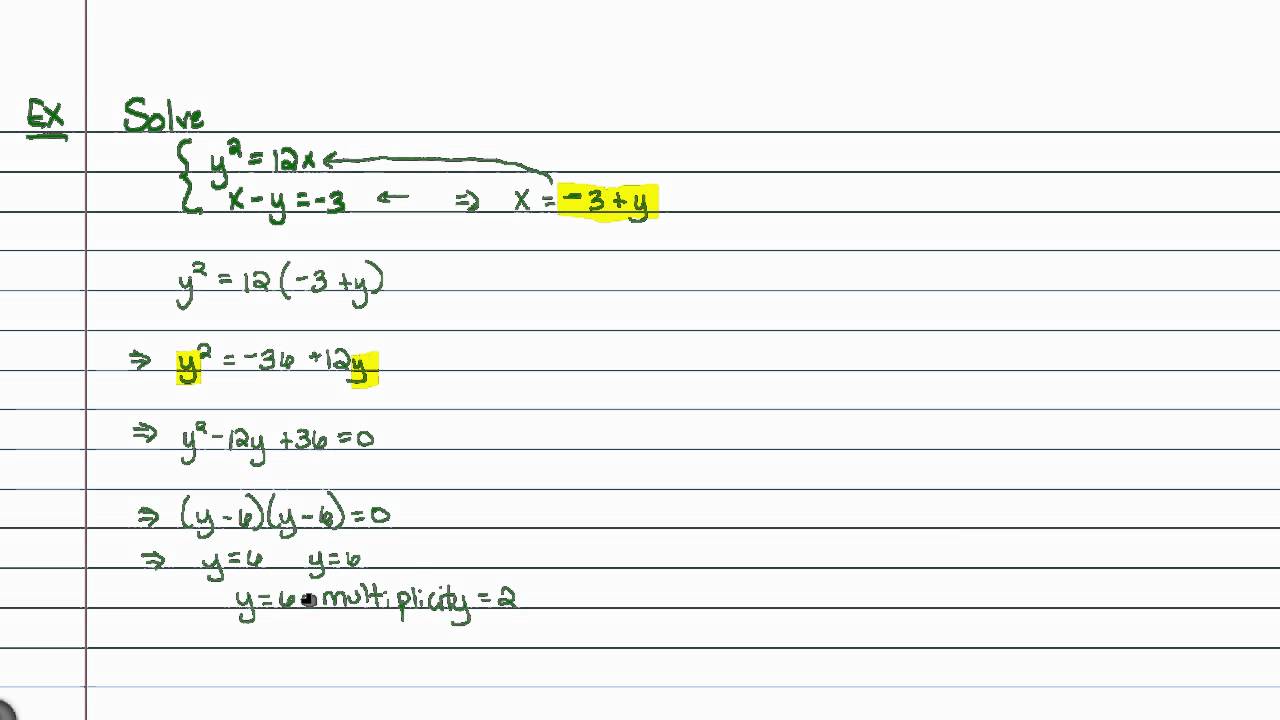 EX Solve
y² = 12x ←
x - y = -3 ← ⇒ x = -3 + y
y² = 12(-3 + y)
⇒ y² = -36 + 12y
⇒ y² - 12y + 36 = 0
⇒ (y - 6)(y - 6) = 0
⇒ y = 6 y = 6
y = 6 multiplicity = 2